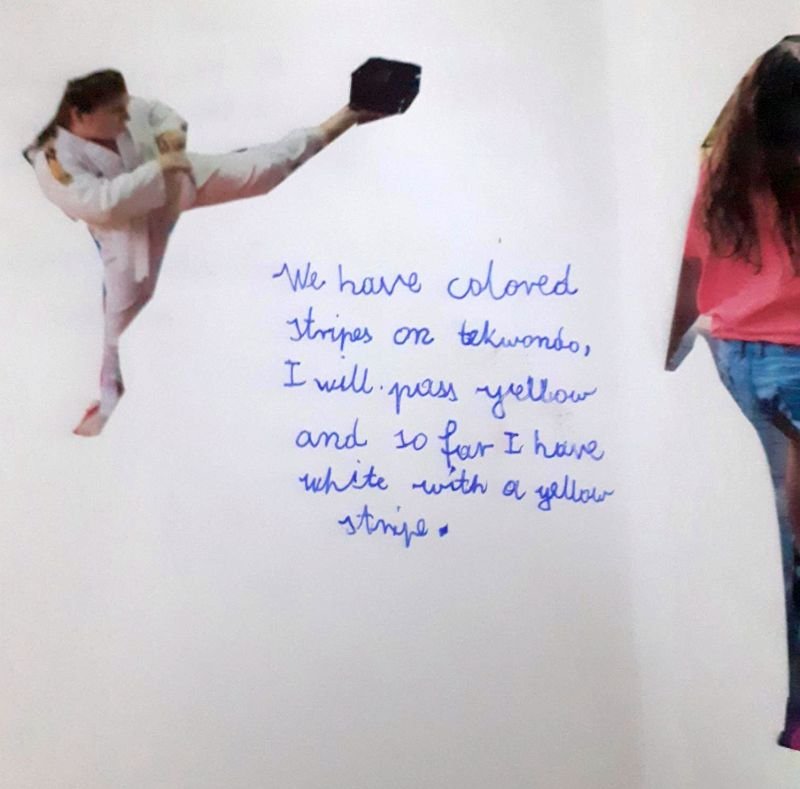 We have colored
stripes on tekwondo,
I will pass yellow
and so far I have
white with a yellow
stripe.